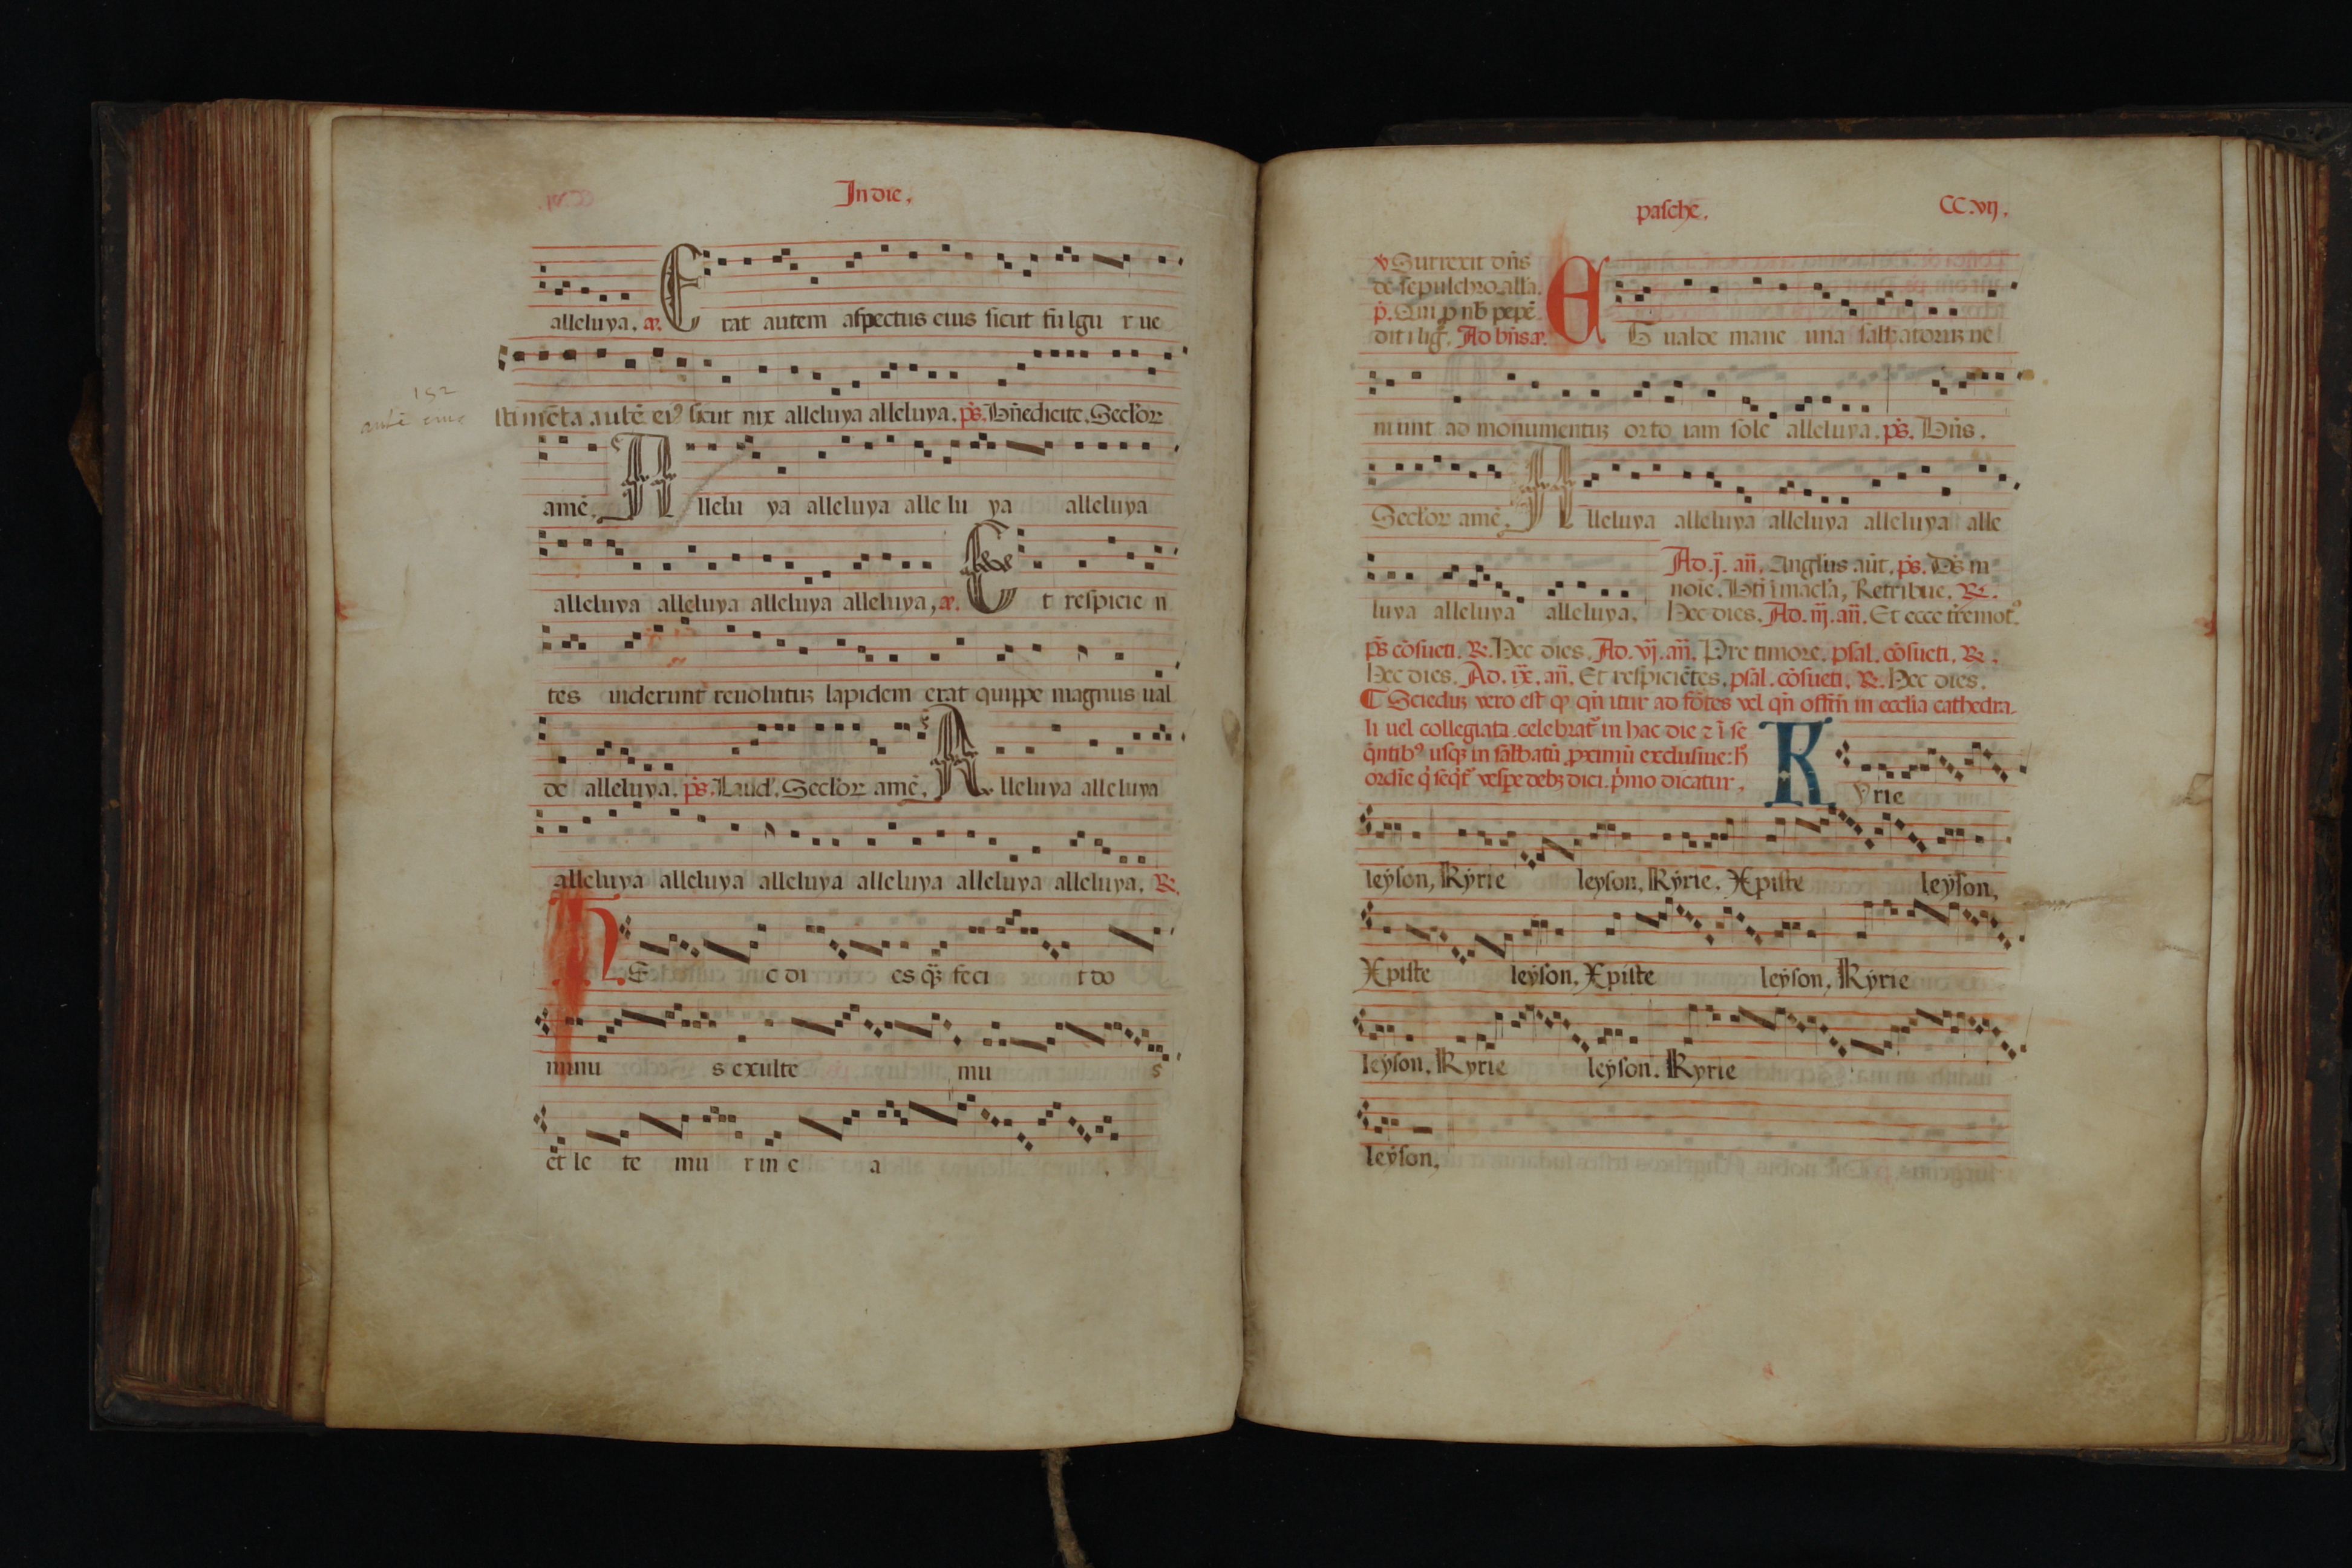 In die.
alleluya. a. E rat autem aspectus eius sicut fu lgu r ue
152
autē eius
sti mēta autē eiꝰ sicut nix alleluya alleluya. ps̄. Bn̄edicite. Secl'or
amē. A llelu ya alleluya alle lu ya alleluya
alleluya alleluya alleluya alleluya, a. E t respicie n
tes uiderunt reuolutuꝫ lapidem erat quippe magnus ual
de alleluya. ps̄. Laud'. Secl'or amē. A lleluya alleluya
alleluya alleluya alleluya alleluya alleluya alleluya. ℞.
H Ec di es q̄ꝫ feci t do
minu s exulte mu s
et le te mu r in e a .
pasche. CC.vij.
℣ Surrexit dn̄s
de sepulchro. all'a.
p̄. Qui ꝓ nb̄ pepē
dit i lig̊. Ad bn̄s a. E t ualde mane una sabbatoruꝫ ue
niunt ad monumentuꝫ orto iam sole alleluya. ps̄. Bn̄s.
Secl'or amē. A lleluya alleluya alleluya alleluya alle
luya alleluya alleluya.
Ad .j. an̄. Angl'us aūt. ps̄. Ds̄ in
noīe. Bt̄i īmacl'a, Retribue. ℞.
Hec dies. Ad .iij. an̄. Et ecce t̄remotꝰ.
ps̄ cōsueti. ℞. Hec dies. Ad .vj. an̄. Pre timore. psal. cōsueti. ℞.
Hec dies. Ad .ix. an̄. Et respiciētes. psal. cōsueti. ℞. Hec dies.
¶ Sciēduꝫ vero est ꝙ qn̄ itur ad fōtes vel qn̄ offm̄ in ecclīa cathedra-
li uel collegiata celebrat᷑ in hac die ⁊ ī se
q̄ntibꝰ usqꝫ in sabbatū ꝓximū exclusiue: h̄
ordīe q̄ seq̄t᷑ vespe debꝫ dici. p̄mo dicatur.
K yrie
leyson, Kyrie leyson, Kyrie. Xpiste leyson,
Xpiste leyson. Xpiste leyson, Kyrie
leyson. Kyrie leyson. Kyrie
leyson.